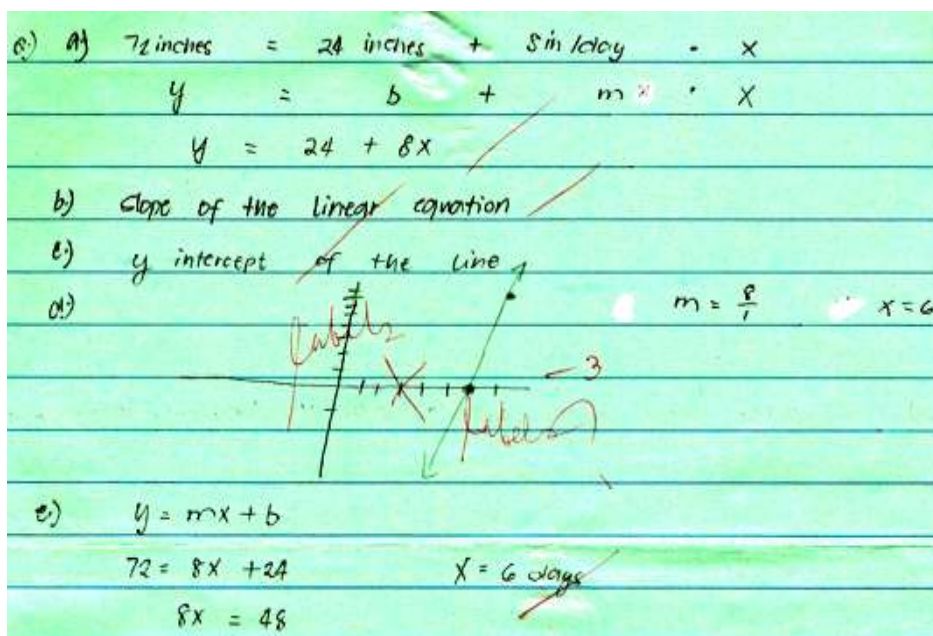 a) 72 inches = 24 inches + 8 in/day · x
y = b + m · x
y = 24 + 8x
b) slope of the linear equation
c.) y intercept of the line
d.) m = 8/1 x = 6
labels
- 3
labels
e.) y = mx + b
72 = 8x + 24 x = 6 days
8x = 48